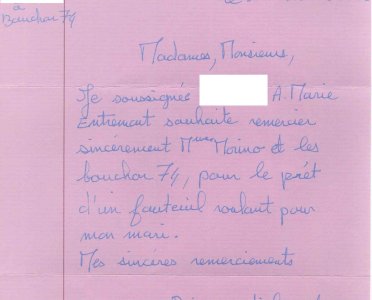 à
Bouchon 74
Madames, Monsieurs,
Je soussignée A. Marie
Entremont souhaite remercier
sincèrement Mme Morino et les
bouchon 74, pour le prêt
d'un fauteuil roulant pour
mon mari.
Mes sincères remerciements